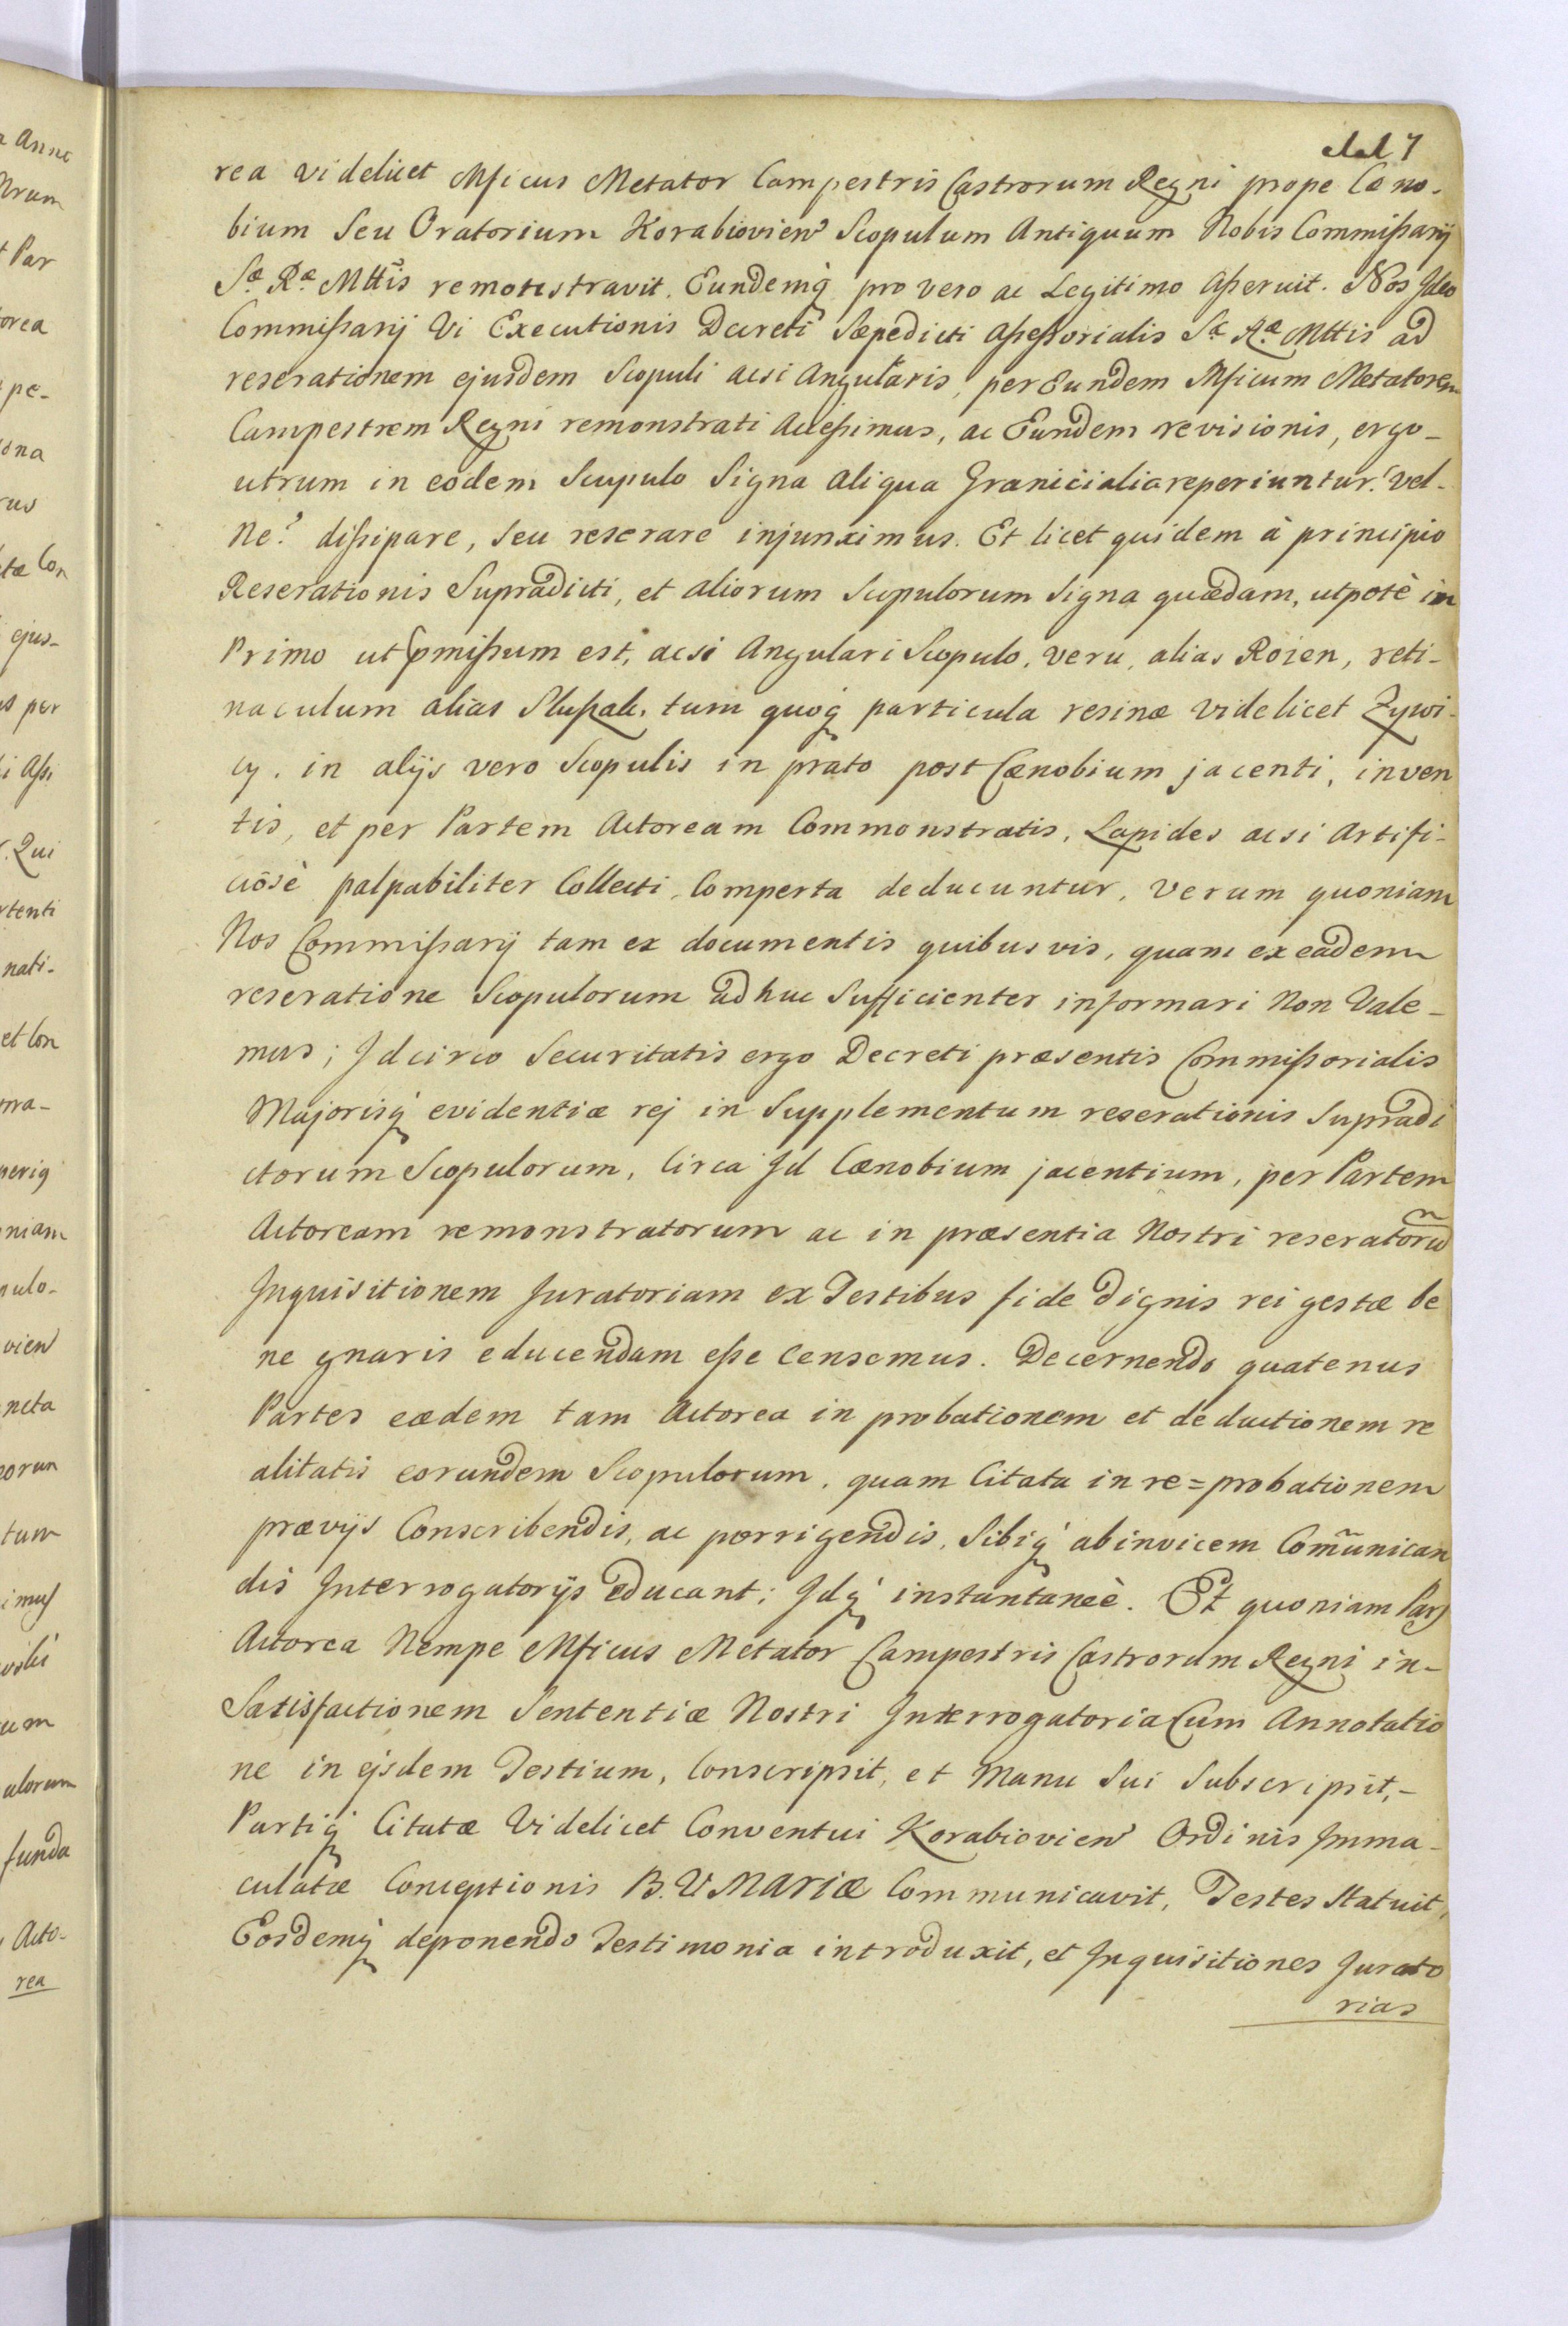 7
rea videlicet Mficus Metator Campestris Castrorum Regni prope Cæno-
bium Seu Oratorium Korabioviens Scopulum Antiquum Nobis Commißarij
Sæ Ræ Mttis remonstravit. Eundemq pro vero ac Legitimo aßeruit. Nos Ideo
Commißarij Vi Executionis Decreti Sæpedicti aßeßorialis Sæ Ræ Mttis ad
reserationem ejusdem Scopuli acsi Angularis, per Eundem Mficum Metatorem
Campestrem Regni remonstrati Acceßimus, ac Eundem revisionis, ergo-
utrum in eodem Scopulo Signa aliqua Granicialia reperiuntur? vel-
ne? dißipare, seu reserare injunximus. Et licet quidem à principio
Reserationis Supradicti, et aliorum Scopulorum Signa quædam, utpotè in
Primo ut pmißum est, acsi Angulari Scopulo, veru, alias Rożen, reti-
naculum alias tum quoq particula resinæ videlicet Zywi-
cy. in alijs vero Scopulis in prato post Cænobium jacenti, inven
tis, et per Partem Actoream Commonstratis, Lapides acsi Artifi-
ciosè palpabiliter Collecti, Comperta deducuntur, verum quoniam
Nos Commißarij tam ex documentis quibusvis, quam ex eadem
reseratione Scopulorum adhuc Sufficienter informari Non Vale-
mus; Idcirco Securitatis ergo Decreti præsentis Commißorialis
Majorisq evidentiæ rej in Supplementum reserationis Supradi
ctorum Scopulorum, Circa Id Cænobium jacentium, per Partem
Actoream remonstratorum ac in præsentia Nostri reseratorũ
Inquisitionem Juratoriam ex Testibus fide dignis rei gestæ be
ne gnaris educendam eße Censemus. Decernendo quatenus
Partes eædem tam Actorea in probationem et deductionem re
alitatis eorundem Scopulorum, quam Citata in re=probationem
prævijs Conscribendis, ac porrigendis, Sibiq abinvicem Com̃unican
dis Interrogatorijs educant; Idq instantaneè. Et quoniam Pars
Actorea Nempe Mficus Metator Campestris Castrorum Regni in-
Satisfactionem Sententiæ Nostri Interrogatoria Cum Annotatio
ne in ejsdem Testium, Conscripsit, et Manu Sui Subscripsit,-
Partiq Citatæ Videlicet Conventui Korabioviens Ordinis Imma-
culatæ Conceptionis B. V. MARIÆ Communicavit, Testes Statuit,
Eosdemq deponendo Testimonia introduxit, et Inquisitiones Jurato
rias